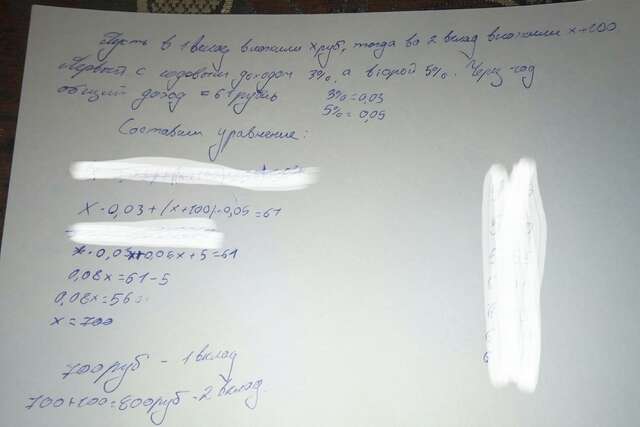 Пусть в 1 вклад вложили x руб, тогда во 2 вклад вложили x+100
Первый с годовым доходом 3%, а второй 5%. Через год
общий доход = 61 рубль 3%=0,03
5%=0,05
Составим уравнение:
x·0,03+(x+100)·0,05=61
x·0,03+0,05x+5=61
0,08x=61-5
0,08x=56
x=700
700руб - 1 вклад
700+100=800руб - 2 вклад.